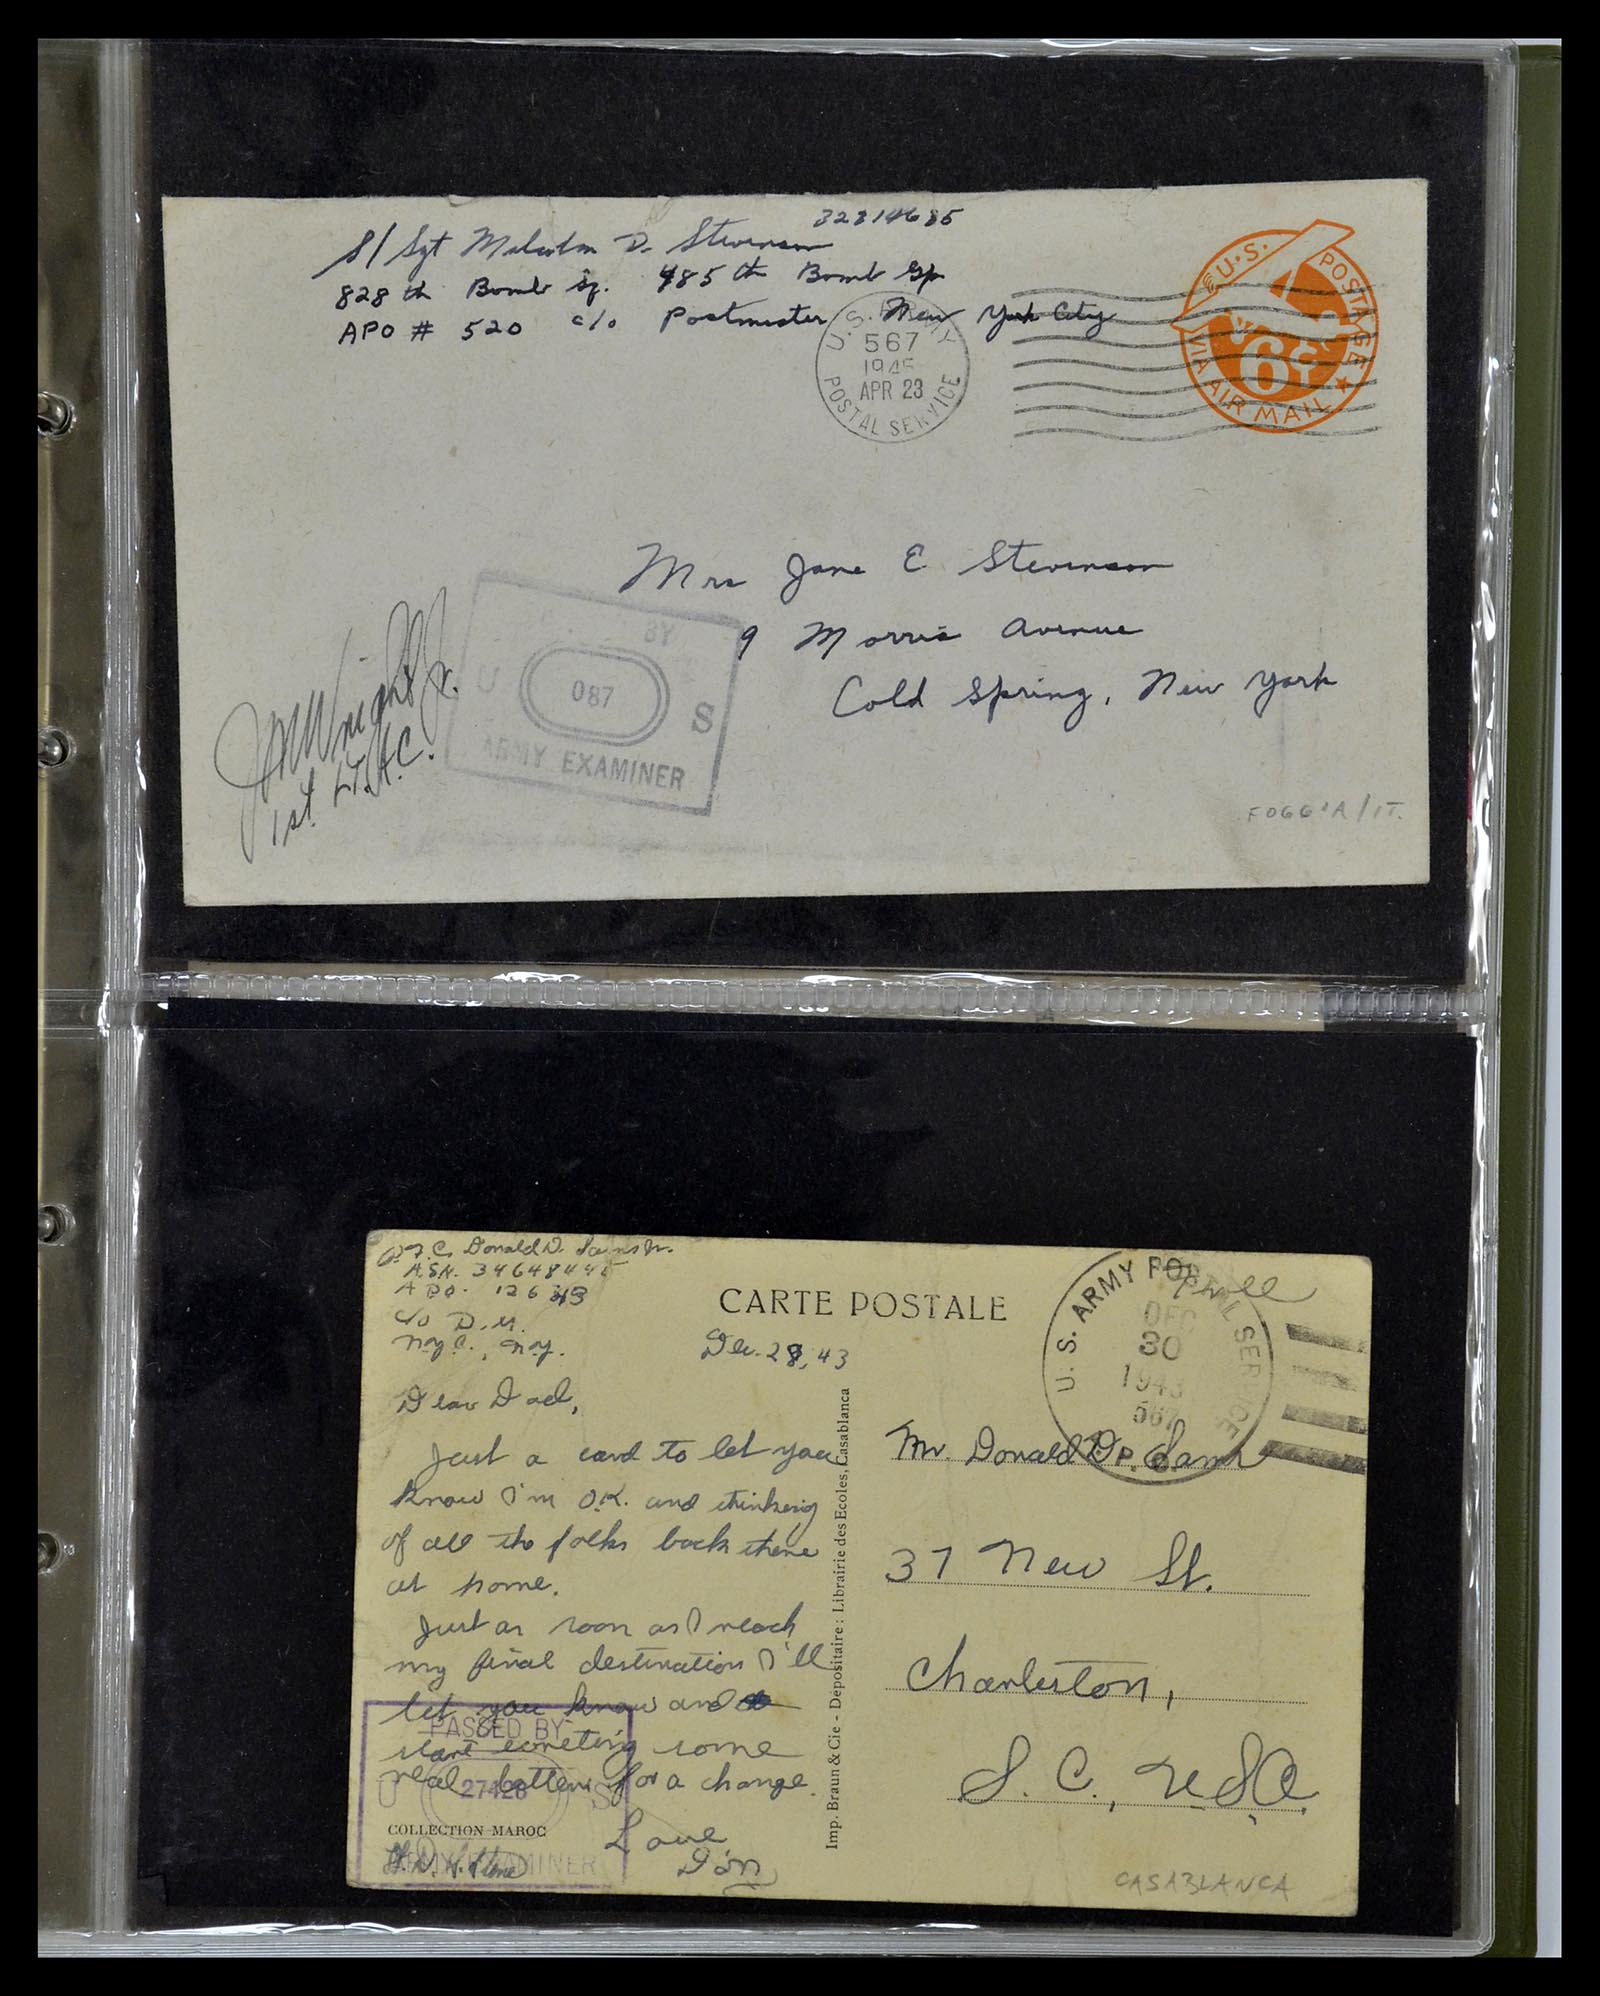 S/Sgt Malcolm D. Stevenson 32814685
828 th Bomb Sq. 485 th Bomb Gp
APO # 520 c/o Postmaster New York City
U.S. ARMY
567
1945
APR 23
POSTAL SERVICE
U.S. POSTAGE
6¢
VIA AIR MAIL
Mrs Jane E Stevenson
9 Morris Avenue
Cold Spring, New York
BY
U 087 S
ARMY EXAMINER
Wright Jr.
1st LT. A.C.
FOGGIA/IT.
P.F.C. Donald D.
A.S.N. 34648445
A.P.O. 12643
c/o P.M.
N.Y.C., N.Y.
CARTE POSTALE
Dec. 28, 43
Free
U.S. ARMY POSTAL SERVICE
DEC
30
1943
567
Dear Dad,
Just a card to let you
know I'm O.K. and thinking
of all the folks back there
at home.
Just as soon as I reach
my final destination I'll
let you know and
start writing some
real letters for a change.
Love
Don
PASSED BY
U 27426 S
ARMY EXAMINER
COLLECTION MAROC
Imp. Braun & Cie - Depositaire : Librairie des Ecoles, Casablanca
Mr. Donald D.
37 New St.
Charleston,
S. C., U.S.A.
CASABLANCA